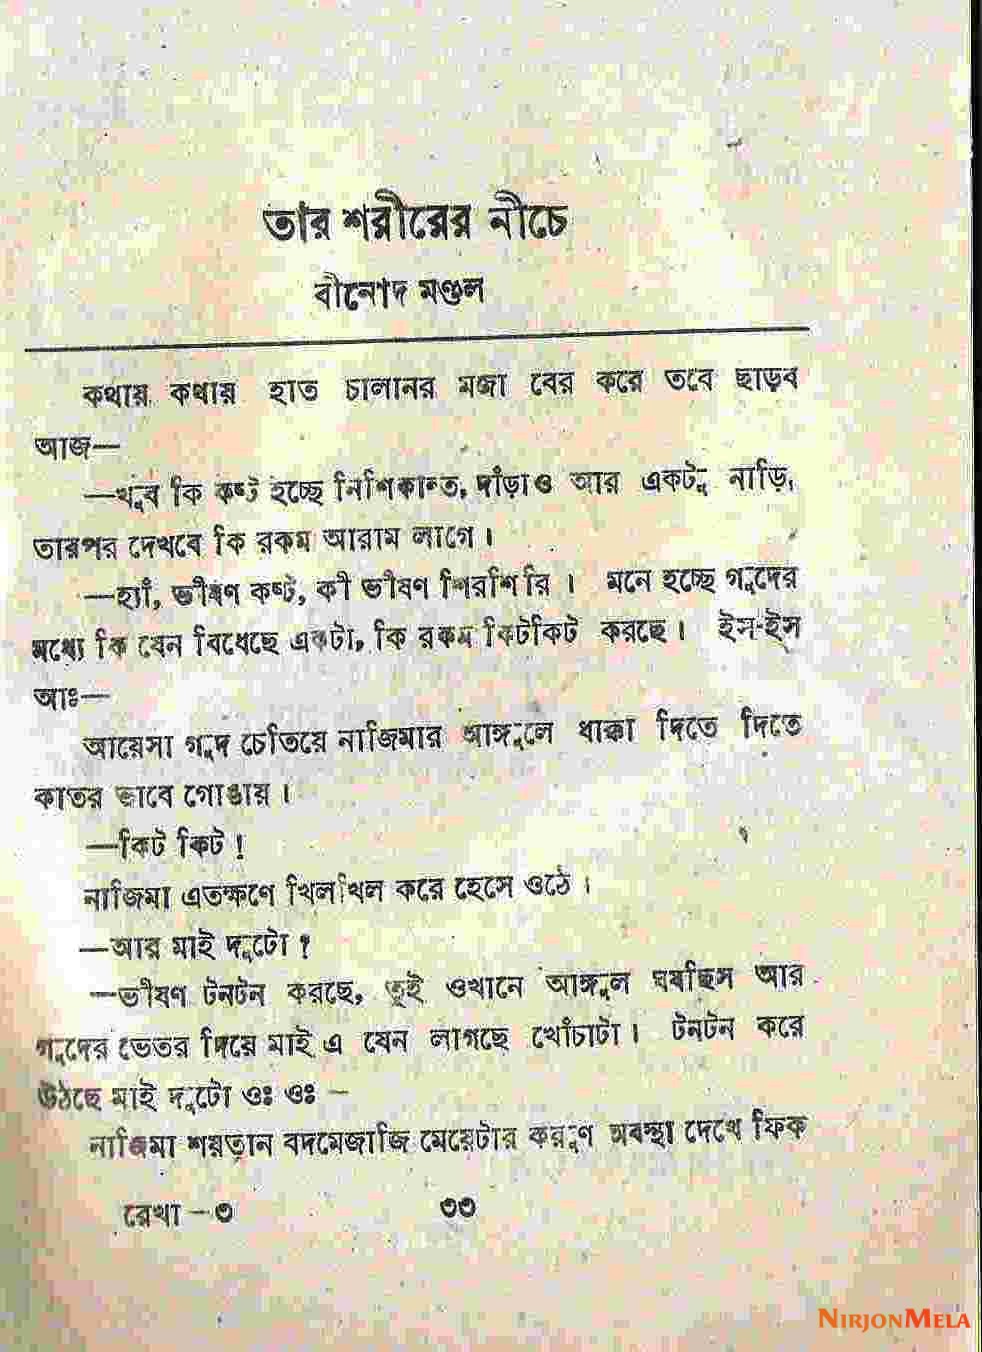 তার শরীরের নীচে
বীনোদ মণ্ডল
কথায় কথায় হাত চালানর মজা বের করে তবে ছাড়ব
আজ—
—খুব কি কষ্ট হচ্ছে নিশিকান্ত, দাঁড়াও আর একটু নাড়ি,
তারপর দেখবে কি রকম আরাম লাগে।
—হ্যাঁ, ভীষণ কষ্ট, কী ভীষণ শিরশিরি। মনে হচ্ছে গুদের
মধ্যে কি যেন বিধেছে একটা, কি রকম কিটকিট করছে। ইস-ইস
আঃ—
আয়েসা গুদ চেতিয়ে নাজিমার আঙ্গুলে ধাক্কা দিতে দিতে
কাতর ভাবে গোঙায়।
—কিট কিট!
নাজিমা এতক্ষণে খিলখিল করে হেসে ওঠে।
—আর মাই দুটো?
—ভীষণ টনটন করছে, তুই ওখানে আঙ্গুল ঘষছিস আর
গুদের ভেতর দিয়ে মাই এ যেন লাগছে খোঁচাটা। টনটন করে
উঠছে মাই দুটো ওঃ ওঃ –
নাজিমা শয়তান বদমেজাজি মেয়েটার করুণ অবস্থা দেখে ফিক
রেখা –৩ ৩৩
NIRJONMELA